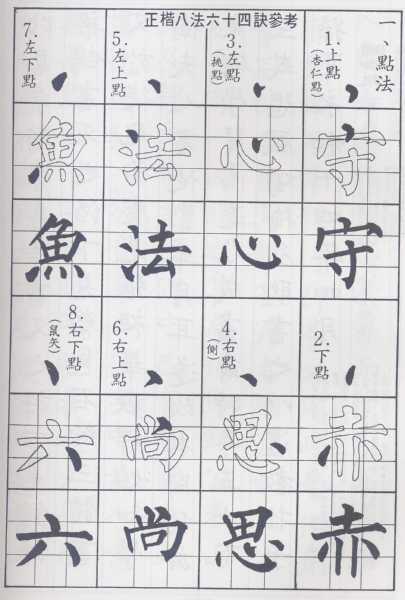 正楷八法六十四訣參考
一、點法
1.上點
(杏仁點)
守
守
2.下點
赤
赤
3.左點
(挑點)
心
心
4.右點
(側)
思
思
5.左上點
法
法
6.右上點
尚
尚
7.左下點
魚
魚
8.右下點
(鼠矢)
六
六